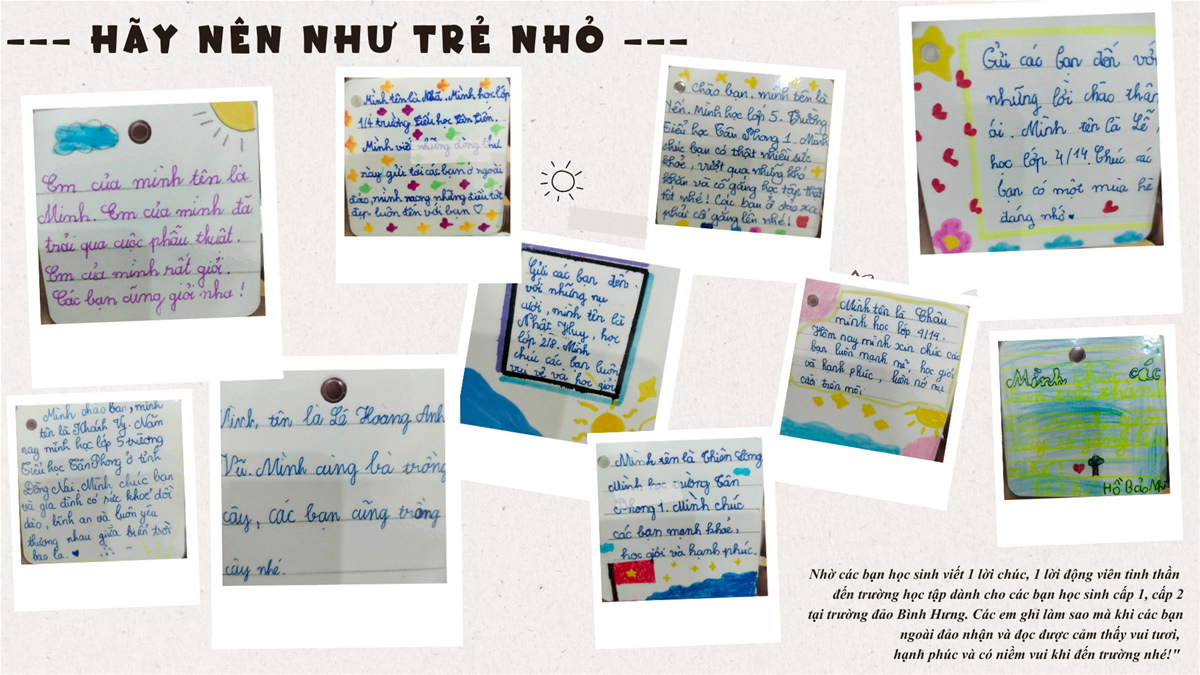 --- HÃY NÊN NHƯ TRẺ NHỎ ---
Em của mình tên là
Minh. Em của mình đã
trải qua cuộc phẫu thuật.
Em của mình rất giỏi.
Các bạn cũng giỏi nha!
Mình tên là Nhã. Mình học lớp
1/4 trường Tiểu học Tân Tiến.
Mình viết những dòng thư
này gửi tới các bạn ở ngoài
đảo, mình mong những điều tốt
đẹp luôn đến với bạn ♡
Chào bạn, mình tên là
Yến. Mình học lớp 5. Trường
Tiểu học Tân Phong 1. Mình
chúc bạn có thật nhiều sức
khoẻ, vượt qua những khó
khăn và cố gắng học tập thật
tốt nhé! Các bạn ở đảo xa
phải cố gắng lên nhé!
Gửi các bạn đến với
những lời chào thân
ái. Mình tên là Lễ,
học lớp 4/14. Chúc các
bạn có một mùa hè
đáng nhớ.
Gửi các bạn đến
với những nụ
cười, mình tên là
Nhật Huy, học
lớp 2/8. Mình
chúc các bạn luôn
vui vẻ và học giỏi
Mình tên là Châu
mình học lớp 4/14.
Hôm nay mình xin chúc các
bạn luôn mạnh mẽ, học giỏi
và hạnh phúc, luôn nở nụ
cười trên môi.
Mình chào bạn, mình
tên là Khánh Vy. Năm
nay mình học lớp 5 trường
Tiểu học Tân Phong ở tỉnh
Đồng Nai. Mình chúc bạn
và gia đình có sức khoẻ dồi
dào, bình an và luôn yêu
thương nhau giữa biển trời
bao la.
Mình, tên là Lê Hoàng Anh
Vũ. Mình cùng bà trồng
cây, các bạn cũng trồng
cây nhé.
Mình tên là Thiên Long
Mình học trường Tân
Phong 1. Mình chúc
các bạn mạnh khoẻ,
học giỏi và hạnh phúc.
Mình chúc các
bạn trở thành
hãy cố gắng lên
nhé!
Hồ Bảo
Nhờ các bạn học sinh viết 1 lời chúc, 1 lời động viên tinh thần
đến trường học tập dành cho các bạn học sinh cấp 1, cấp 2
tại trường đảo Bình Hưng. Các em ghi làm sao mà khi các bạn
ngoài đảo nhận và đọc được cảm thấy vui tươi,
hạnh phúc và có niềm vui khi đến trường nhé!"